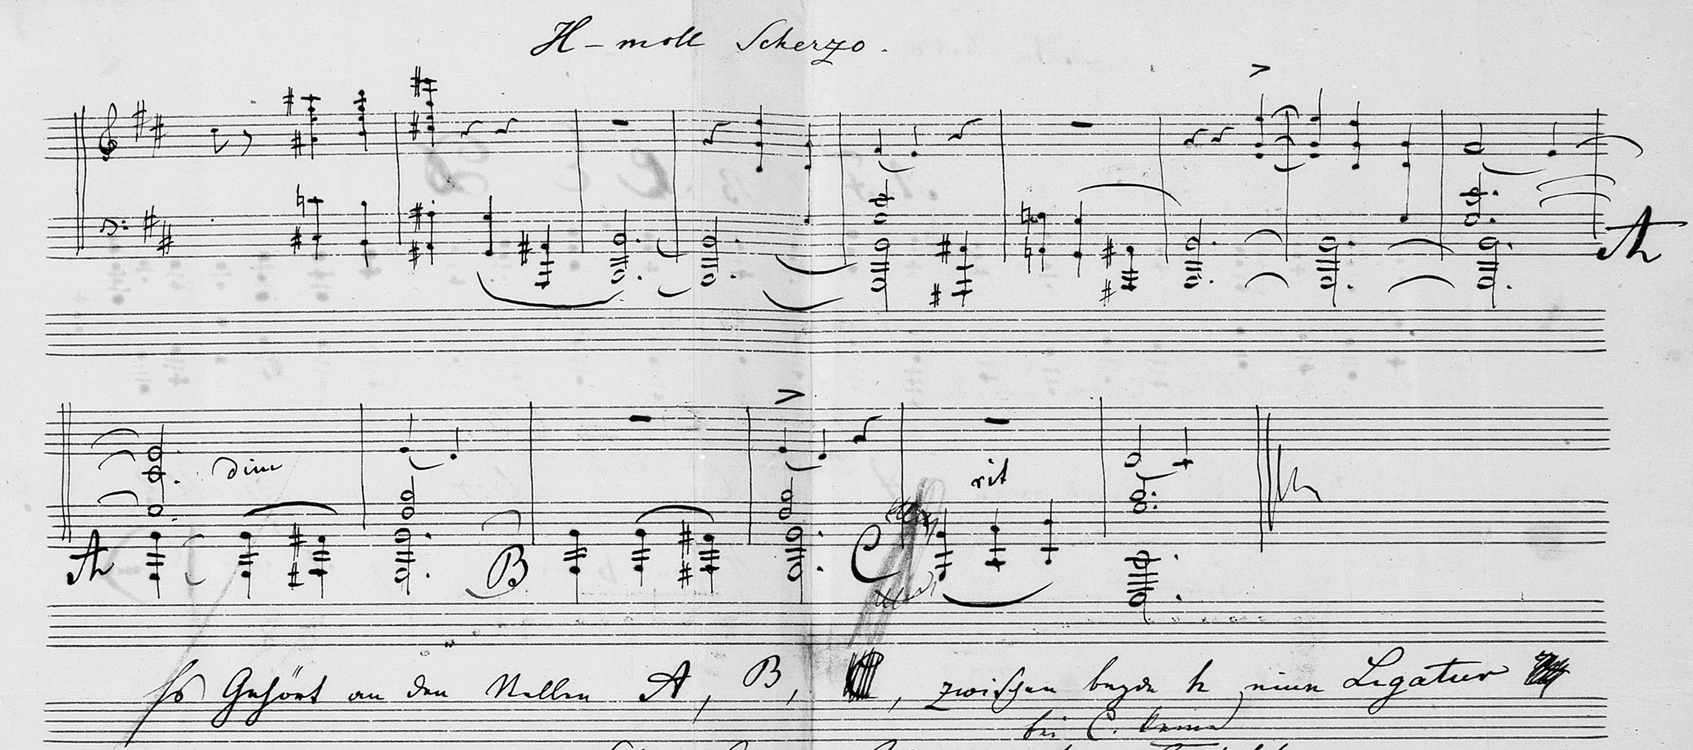 H-moll Scherzo.
A
dim
rit
A B C
Es gehört an den Stellen A, B, , zwischen beyde h eine Ligatur
bei C. keine